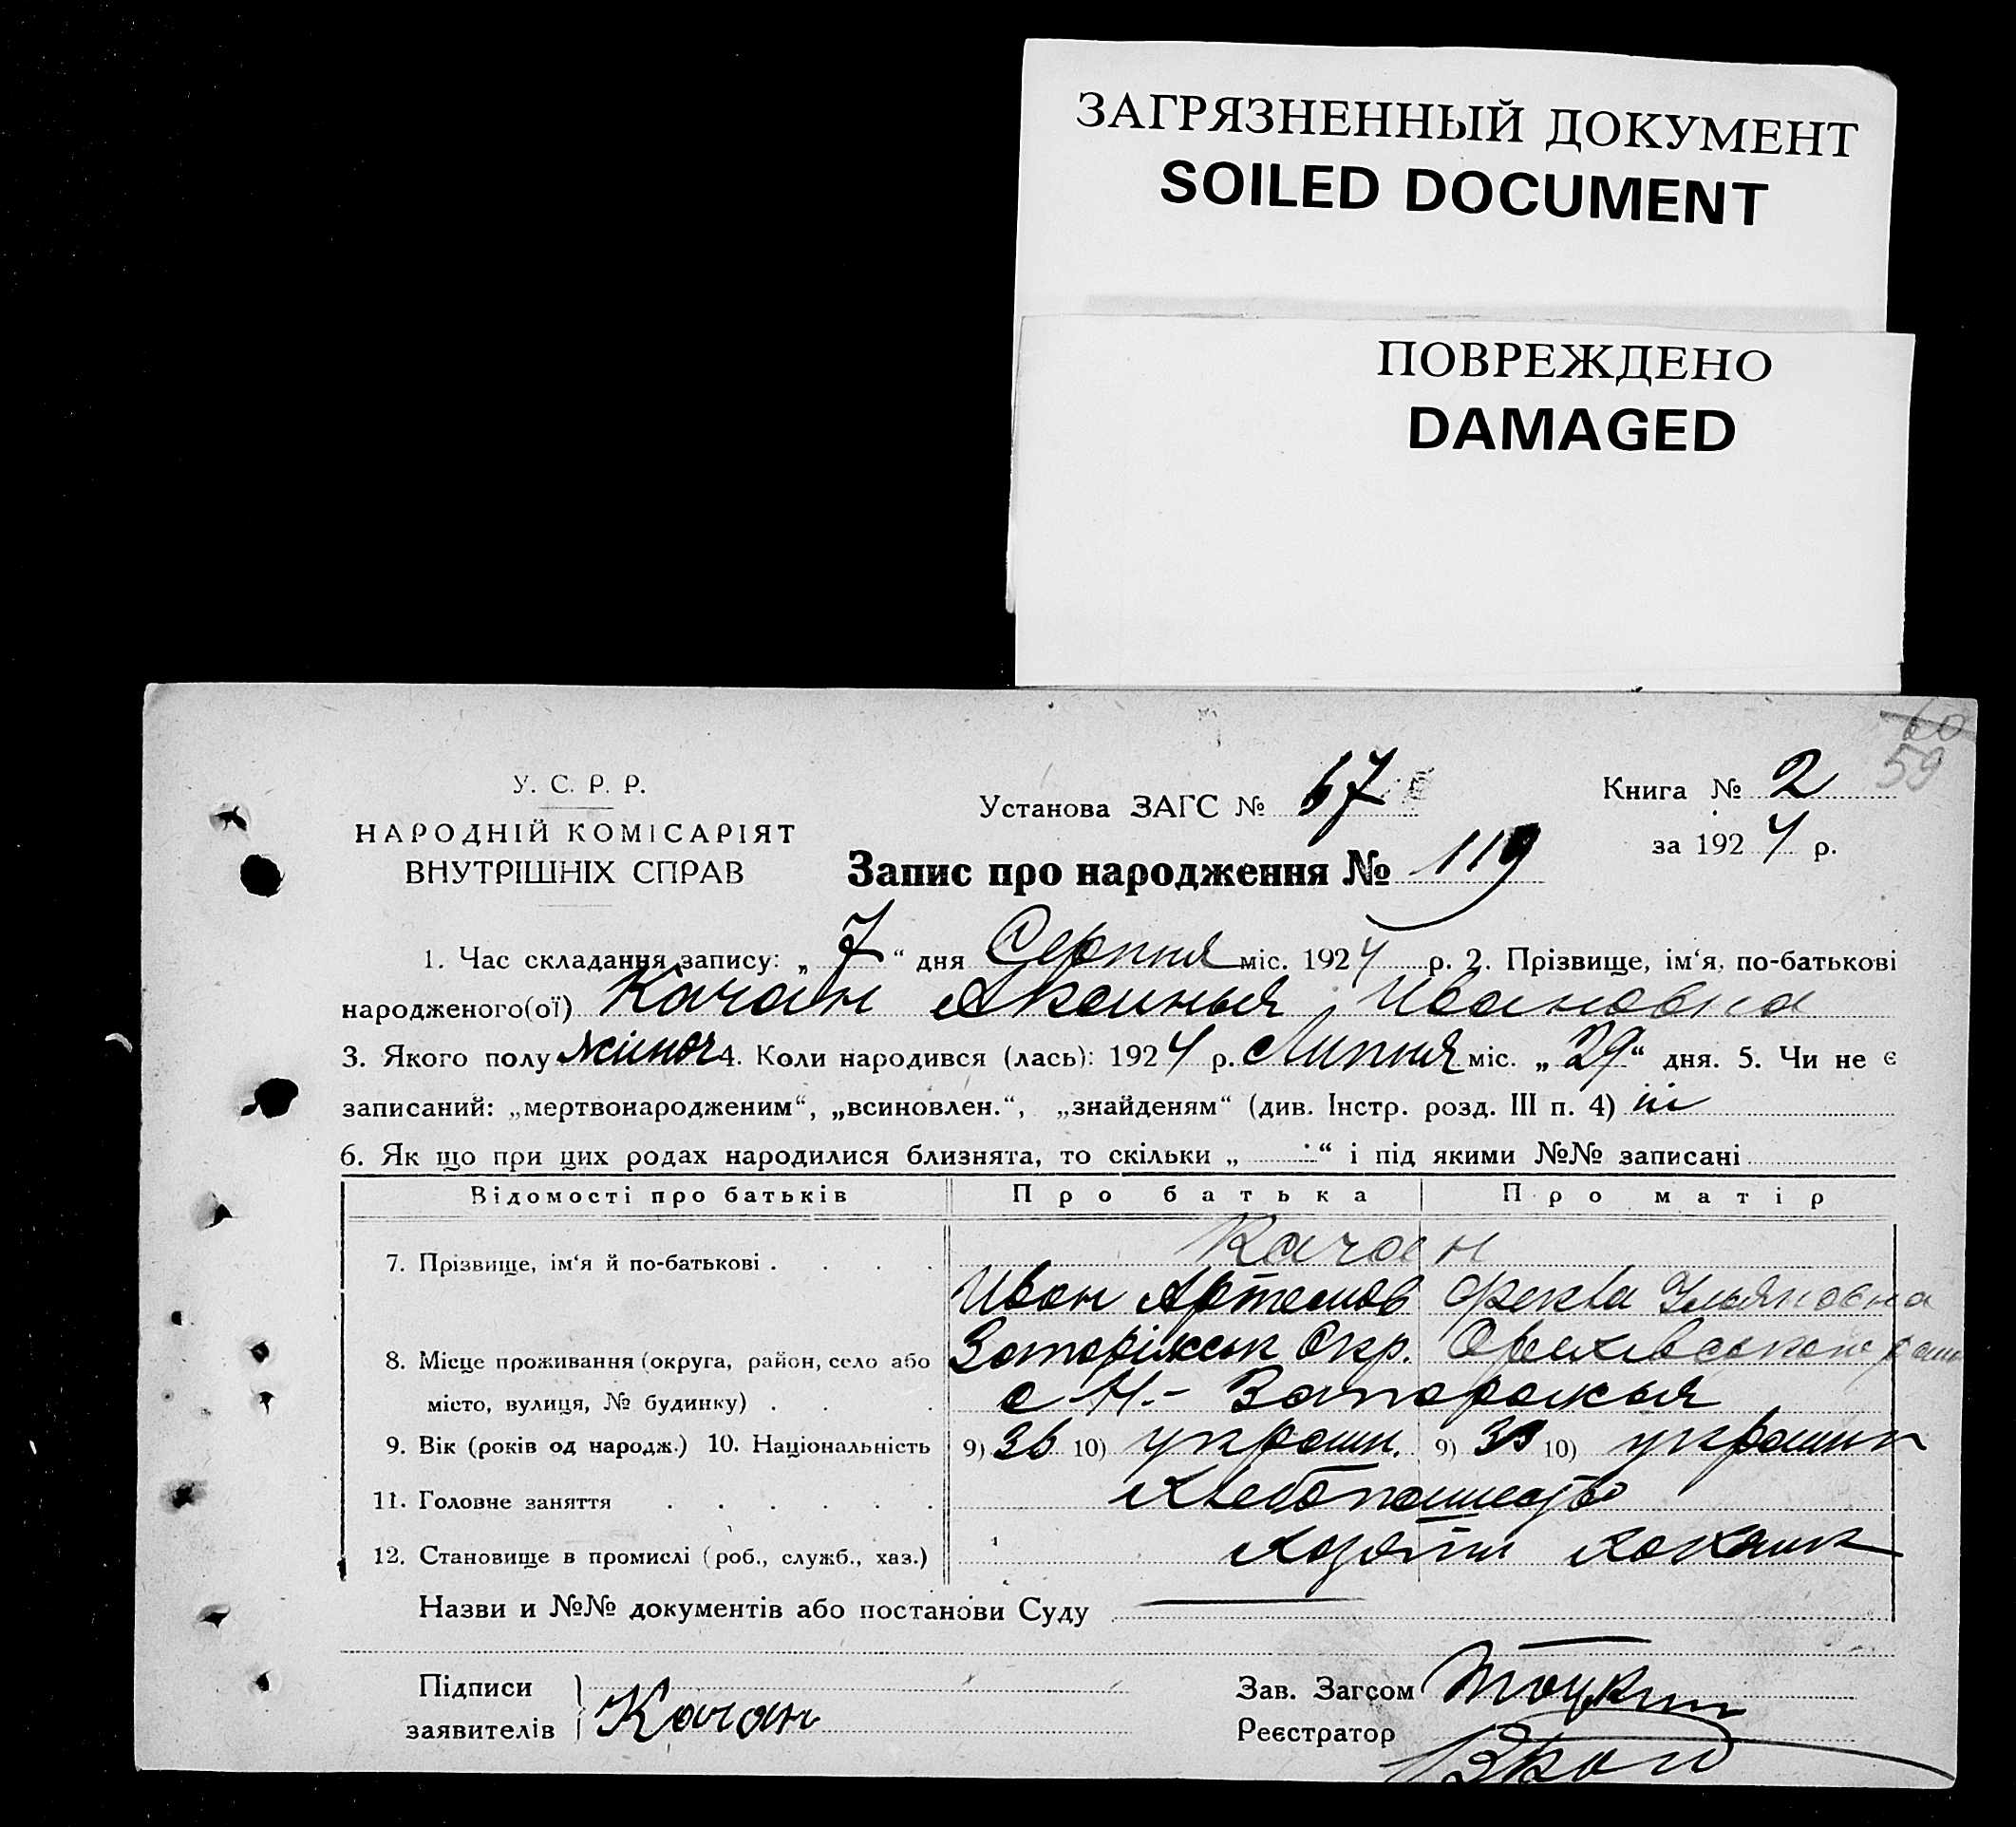 ЗАГРЯЗНЕННЫЙ ДОКУМЕНТ
SOILED DOCUMENT
ПОВРЕЖДЕНО
DAMAGED
60
59
У. С. Р. Р.
НАРОДНІЙ КОМІСАРІЯТ
ВНУТРІШНІХ СПРАВ
Установа ЗАГС № 67
Книга № 2
за 1924 р.
Запис про народження № 119
1. Час складання запису: „7“ дня Серпня міс. 1924 р. 2. Прізвище, ім‘я, по-батькові
народженого(ої) Качан Аксинья Ивановна
3. Якого полу жіноч 4. Коли народився (лась): 1924 р. Липня міс. „29“ дня. 5. Чи не є
записаний: „мертвонародженим“, „всиновлен.“, „знайденям“ (див. Інстр. розд. III п. 4) ні
6. Як що при цих родах народилися близнята, то скільки „ “ і під якими №№ записані
Відомості про батьків Про батька Про матір
Качан
7. Прізвище, ім‘я й по-батькові
Иван Артемов Фекла Ульяновна
8. Місце проживання (округа, район, село або Запоріжськ Окр. Орехівського
місто, вулиця, № будинку) с Н.- Запорожья
9. Вік (років од народж.) 10. Національність 9) 36 10) украин. 9) 33 10) украинк
11. Головне заняття Хлебопашество
12. Становище в промислі (роб., служб., хаз.)
Назви и №№ документів або постанови Суду
Підписи
заявителів Качан
Зав. Загсом
Реєстратор